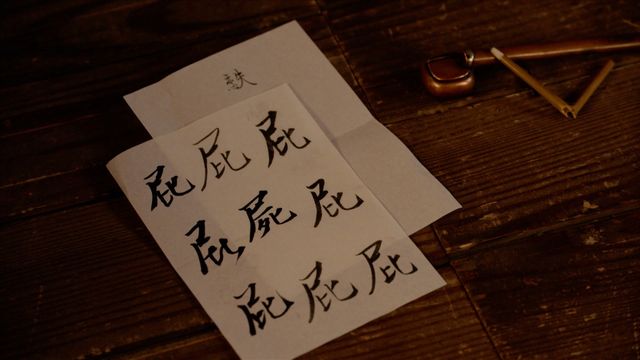 屁屁屁
屁屍屁
屁屁屁